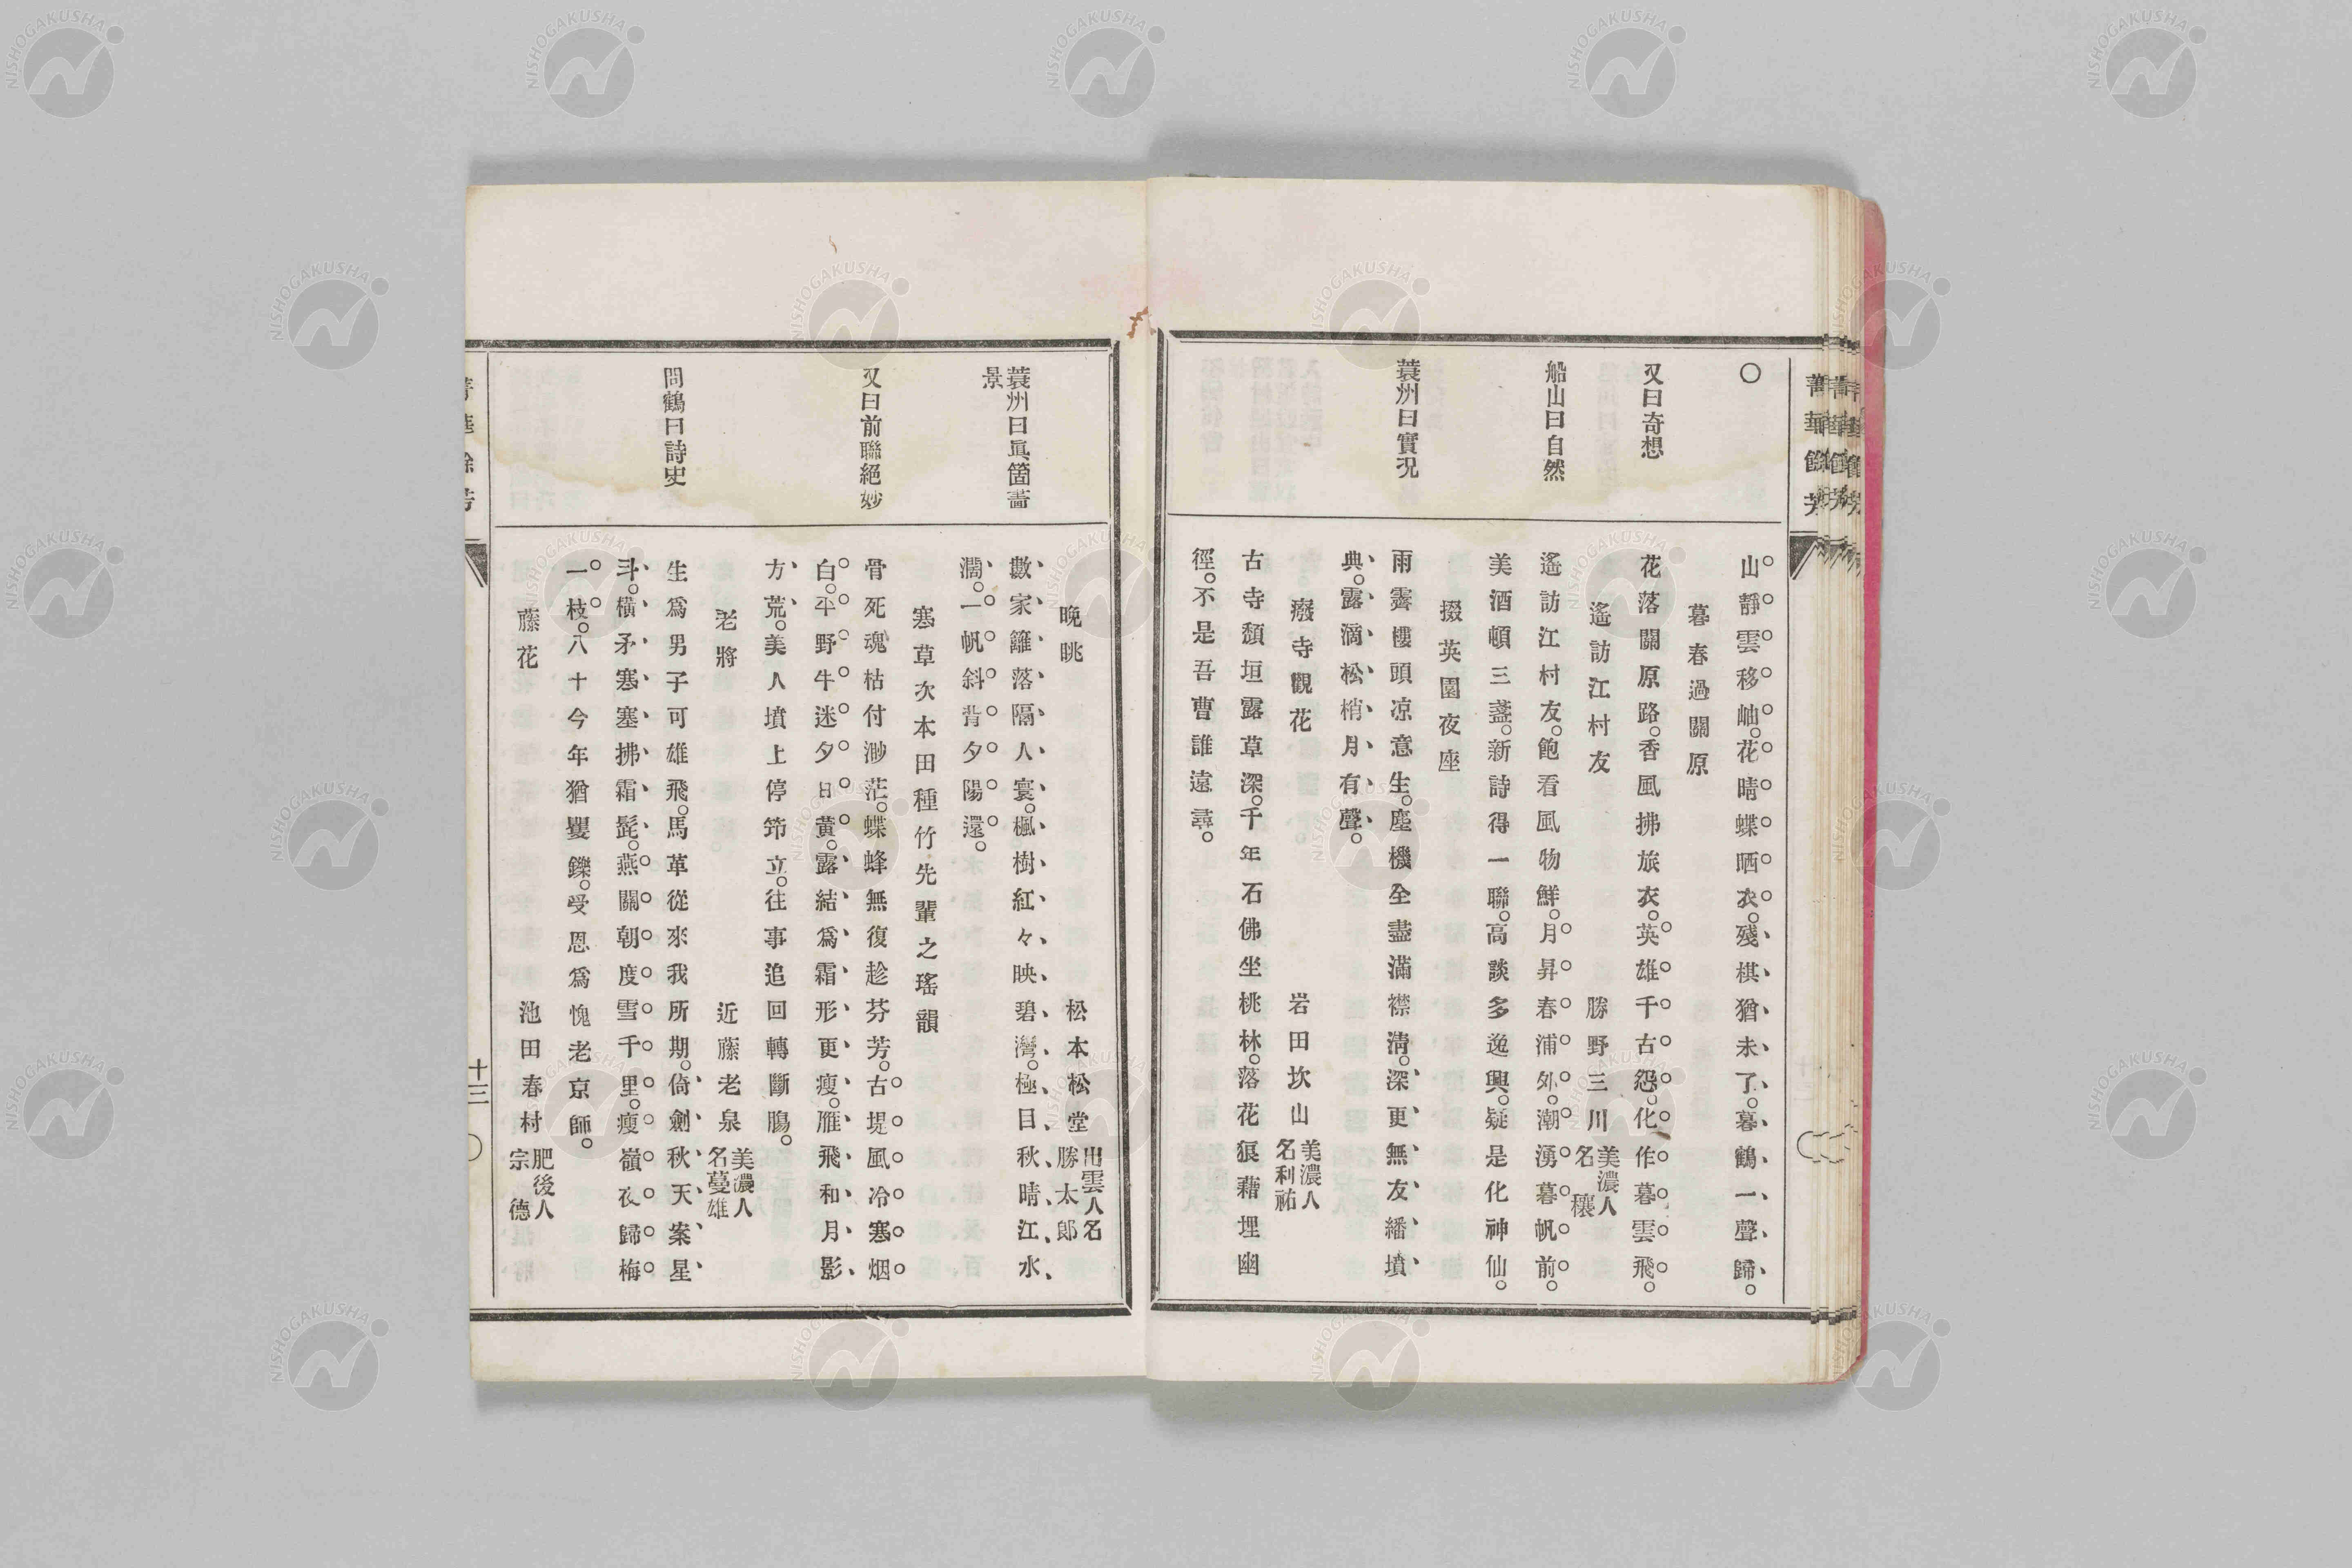 菁華餘芳
○
山靜雲移岫。花晴蝶晒衣。殘棋猶未了。暮鶴一聲歸。
暮春過關原
又曰奇想
花落關原路。香風拂旅衣。英雄千古怨。化作暮雲飛。
遙訪江村友
勝野三川
美濃人
名穰
船山曰自然
遙訪江村友。飽看風物鮮。月昇春浦外。潮湧暮帆前。
美酒頓三盞。新詩得一聯。高談多逸興。疑是化神仙。
掇英園夜座
蓑州曰實況
雨霽樓頭凉意生。塵機全盡滿襟淸。深更無友繙墳
典。露滴松梢月有聲。
癈寺觀花
岩田坎山
美濃人
名利祐
古寺頽垣露草深。千年石佛坐桃林。落花狼藉埋幽
徑。不是吾曹誰遠尋。
晚眺
松本松堂
出雲人名
勝太郎
蓑州曰眞箇畵
景
數家籬落隔人寰。楓樹紅々映碧灣。極目秋晴江水
濶。一帆斜背夕陽還。
寒草次本田種竹先輩之瑤韻
又曰前聯絕妙
骨死魂枯付渺茫。蝶蜂無復趁芬芳。古堤風冷寒烟
白。平野牛迷夕日黃。露結爲霜形更瘦。雁飛和月影
方荒。美人墳上停笻立。往事追回轉斷膓。
老將
近藤老泉
美濃人
名蔓雄
問鶴曰詩史
生爲男子可雄飛。馬革從來我所期。倚劍秋天案星
斗。橫矛寒塞拂霜髭。燕關朝度雪千里。瘦嶺夜歸梅
一枝。八十今年猶矍鑠。受恩爲愧老京師。
藤花
池田春村
肥後人
宗德
十三